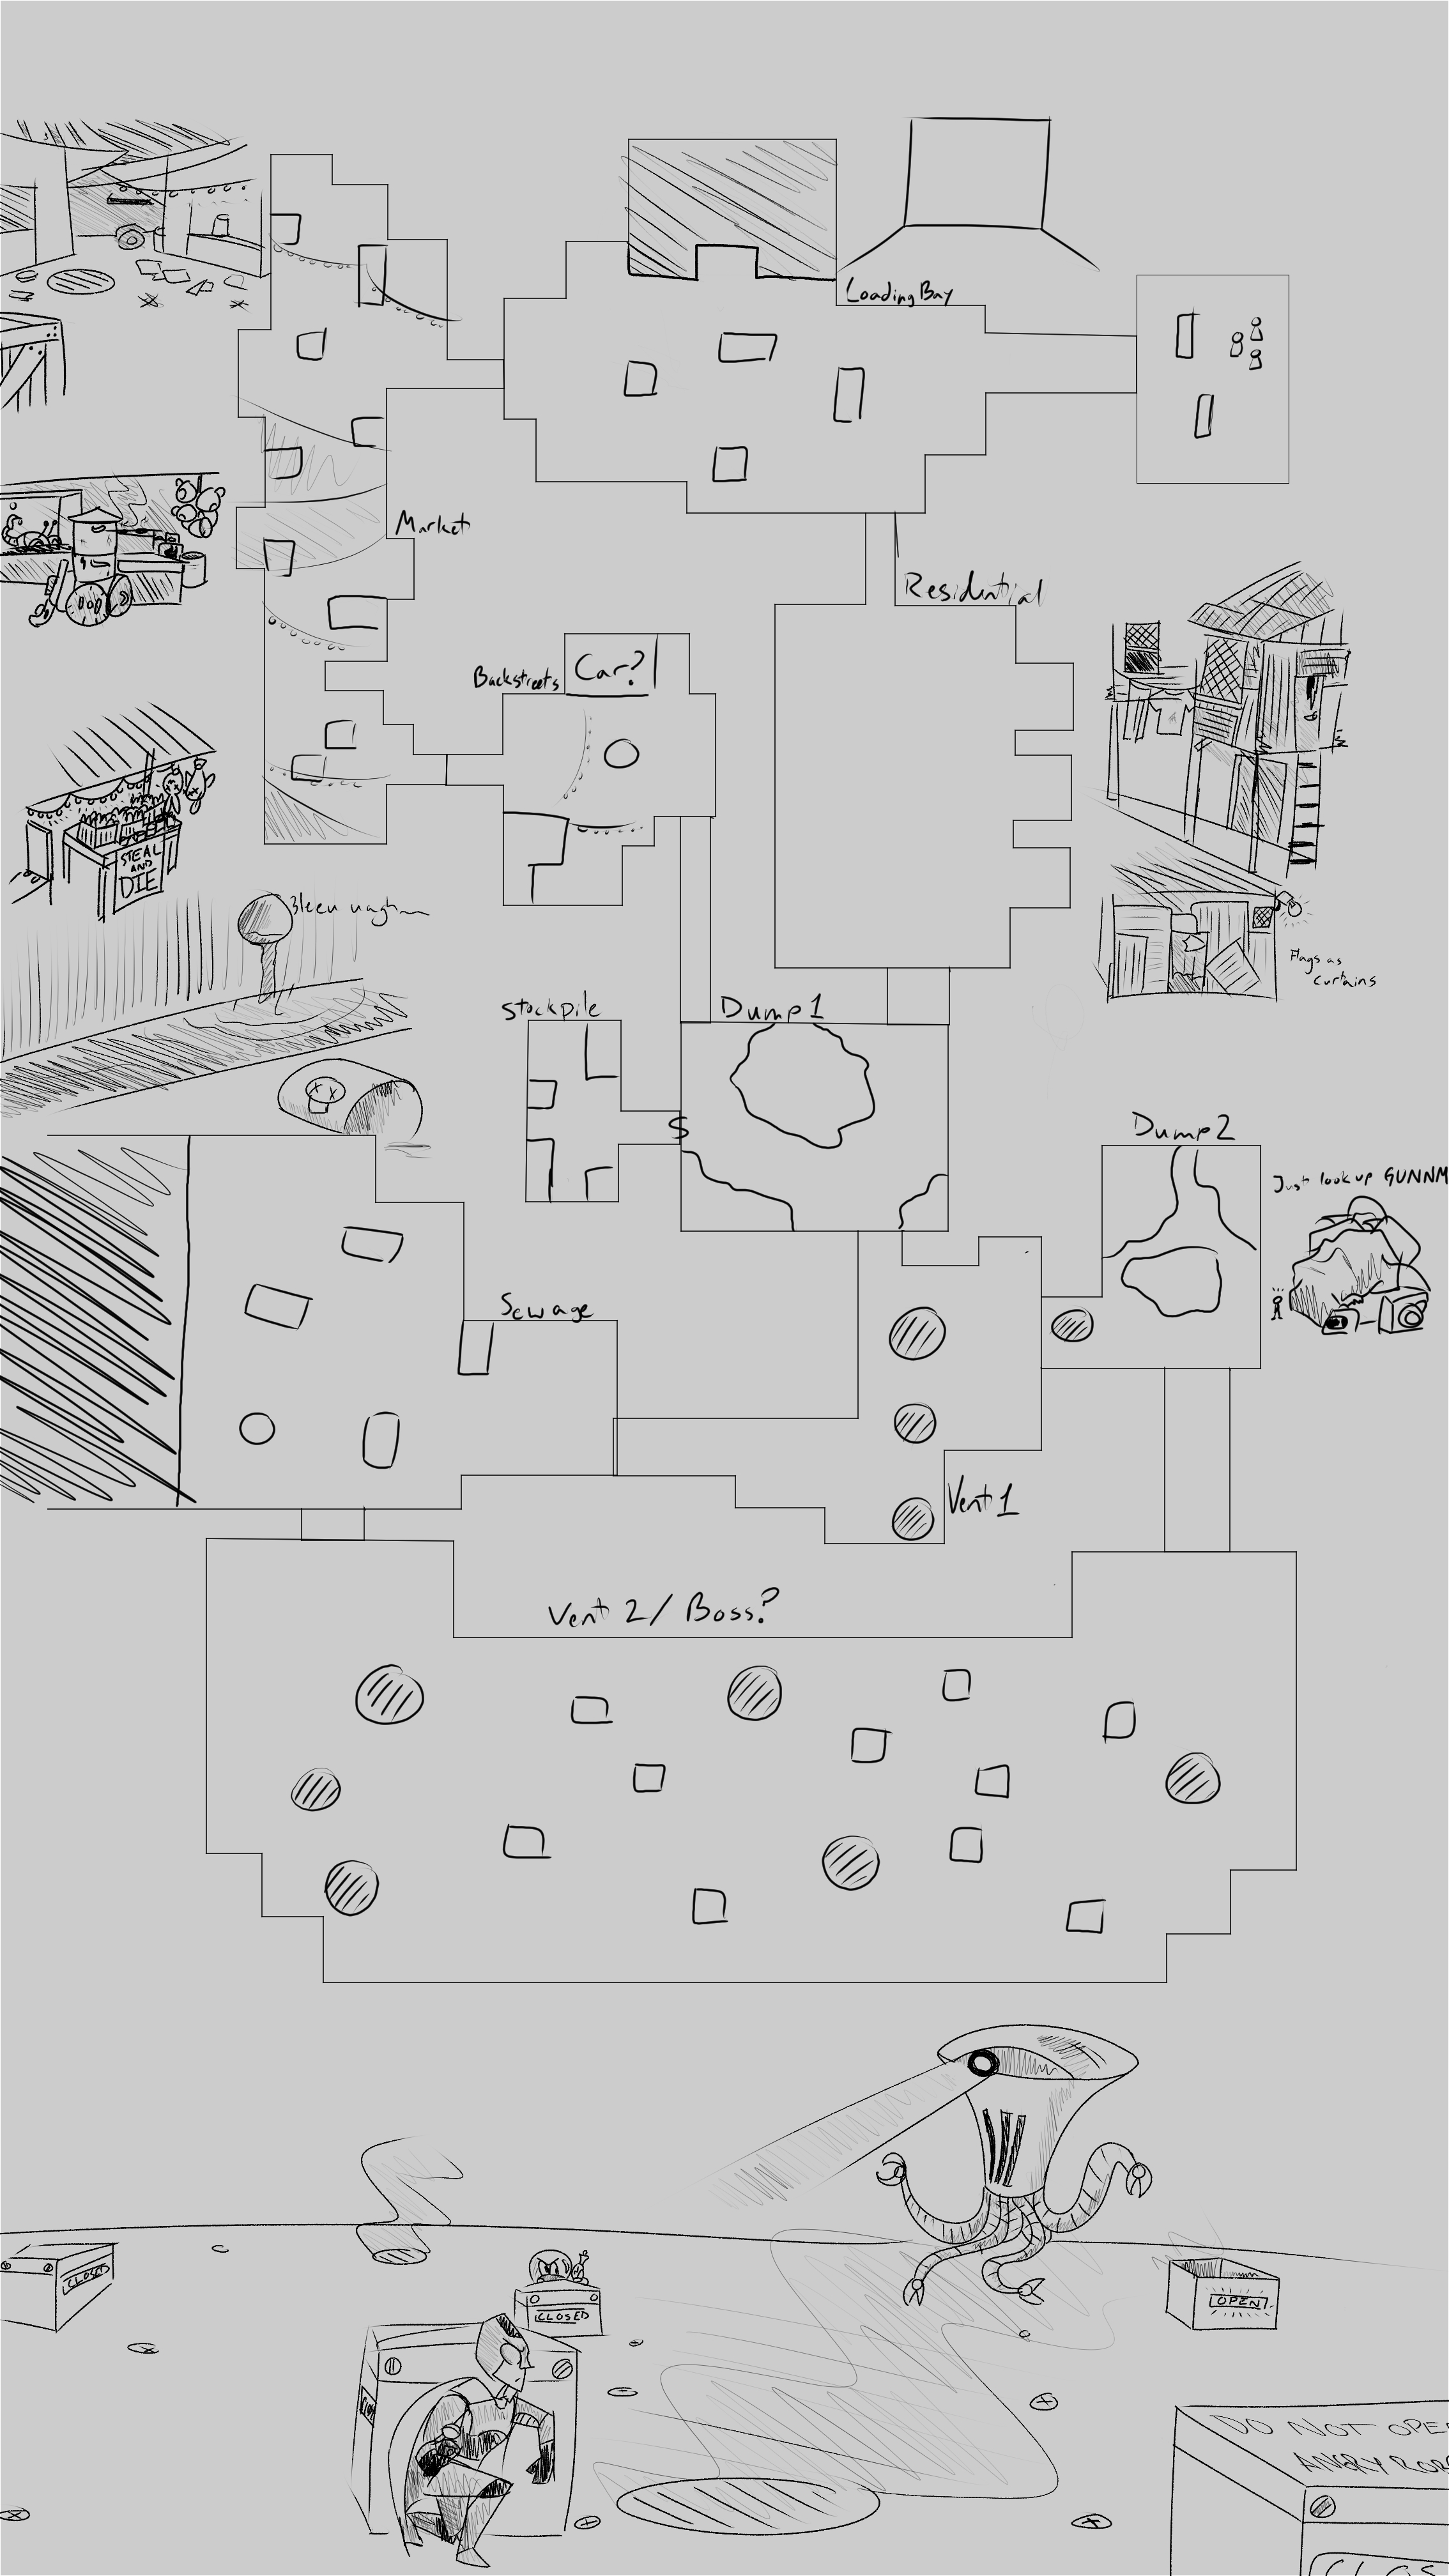 Loading Bay
Market
Residential
Backstreets
Car?
STEAL
AND
DIE
Flags as
curtains
Stockpile
Dump 1
$
Dump 2
Just look up GUNNM
Sewage
Vent 1
Vent 2/ Boss?
CLOSED
CLOSED
OPEN
DO NOT OPE
ANGRY ROB
CLOS